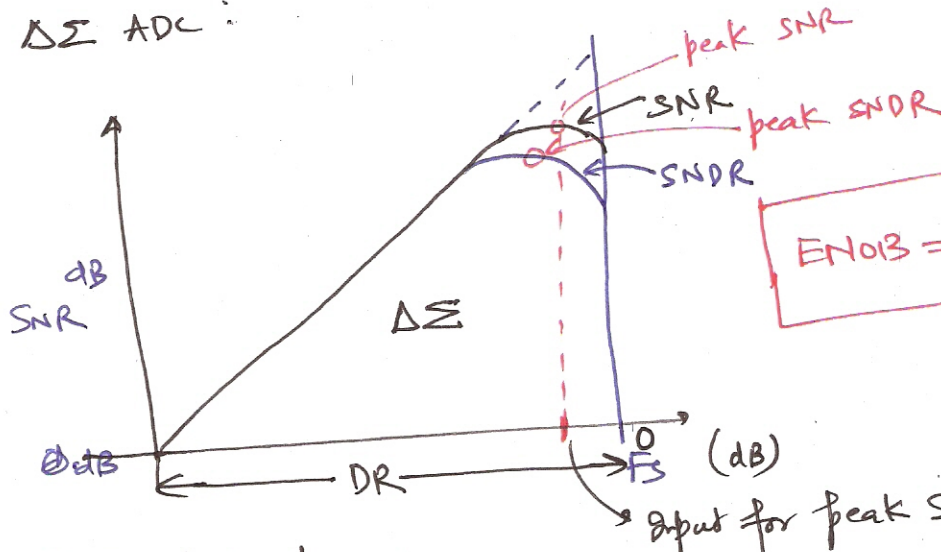 ΔΣ ADC :
peak SNR
SNR
peak SNDR
SNDR
ENOB =
dB
SNR
ΔΣ
0 dB
0
FS
(dB)
DR
Input for peak S